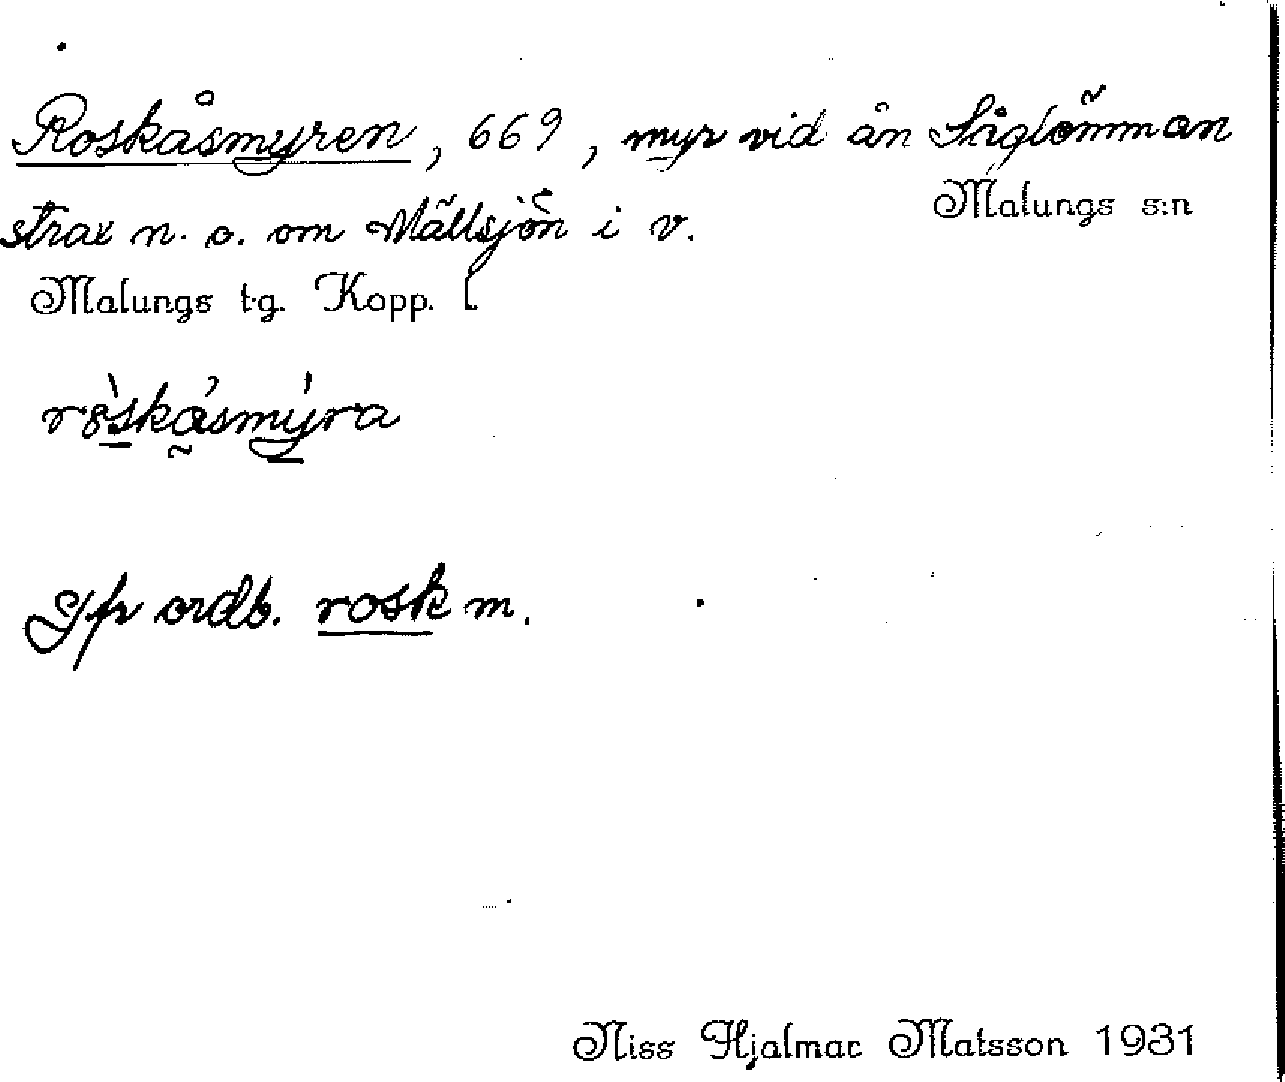 Roskåsmyren, 669, myr vid ån
Malungs s:n
strax n. o. om Mällsjön i v.
Malungs tg. Kopp. L
Jfr ordb. rosk m.
Niss Hjalmar Matsson 1931